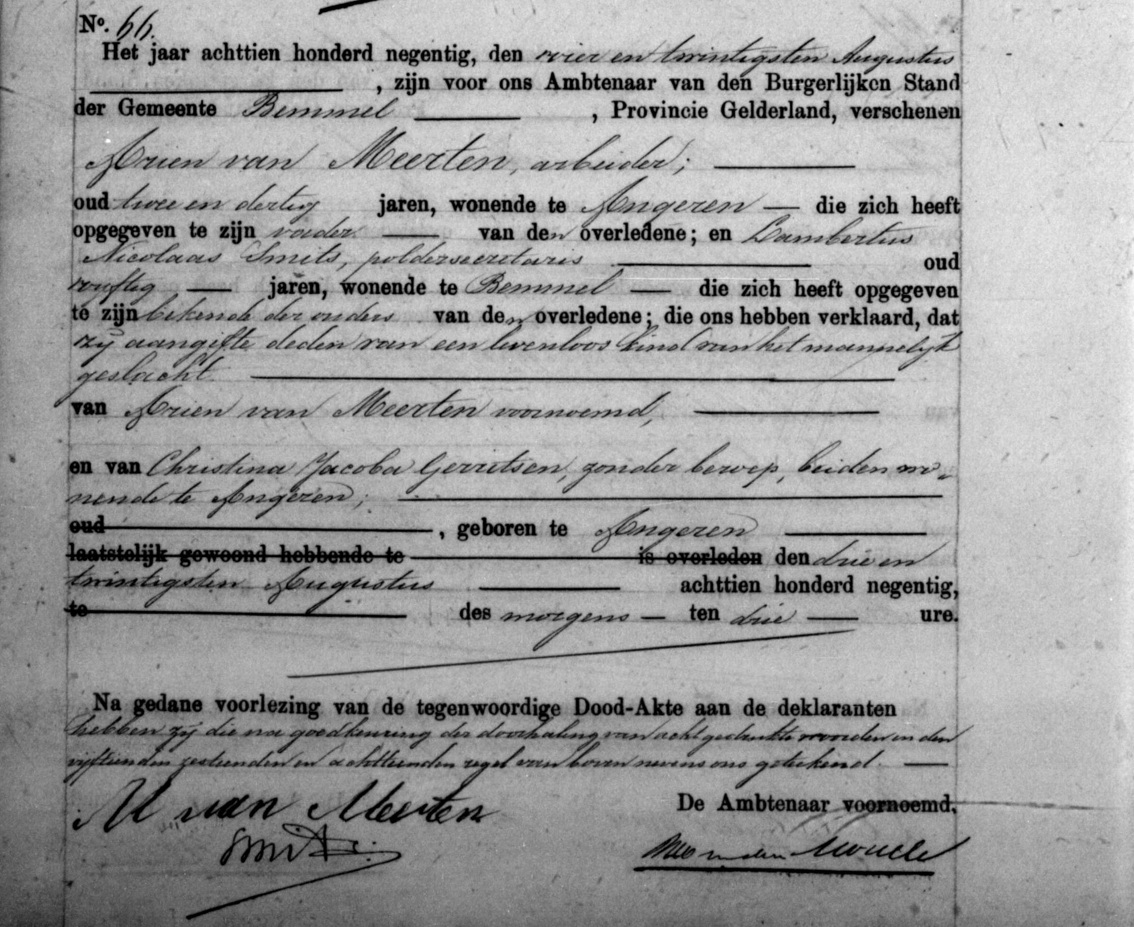 No. 66.
Het jaar achttien honderd negentig, den vier en twintigsten Augustus
, zijn voor ons Ambtenaar van den Burgerlijken Stand
der Gemeente Bemmel , Provincie Gelderland, verschenen
Arien van Meerten, arbeider;
oud twee en dertig jaren, wonende te Angeren die zich heeft
opgegeven te zijn vader van den overledene; en Lambertus
Nicolaas Smits, poldersecretaris oud
vijftig jaren, wonende te Bemmel die zich heeft opgegeven
te zijn bekende der ouders van den overledene; die ons hebben verklaard, dat
zij aangifte deden van een levenloos kind van het mannelijk
geslacht.
van Arien van Meerten voornoemd,
en van Christina Jacoba Gerritsen, zonder beroep, beiden wo-
nende te Angeren;
oud , geboren te Angeren
laatstelijk gewoond hebbende te is overleden den drie en
twintigsten Augustus achttien honderd negentig,
te des morgens ten drie ure.
Na gedane voorlezing van de tegenwoordige Dood-Akte aan de deklaranten
hebben zij die na goedkeuring der doorhaling van acht gedrukte woorden in den
vijftienden zestienden en achttienden regel van boven nevens ons geteekend
van Meerten
De Ambtenaar voornoemd,
Smits